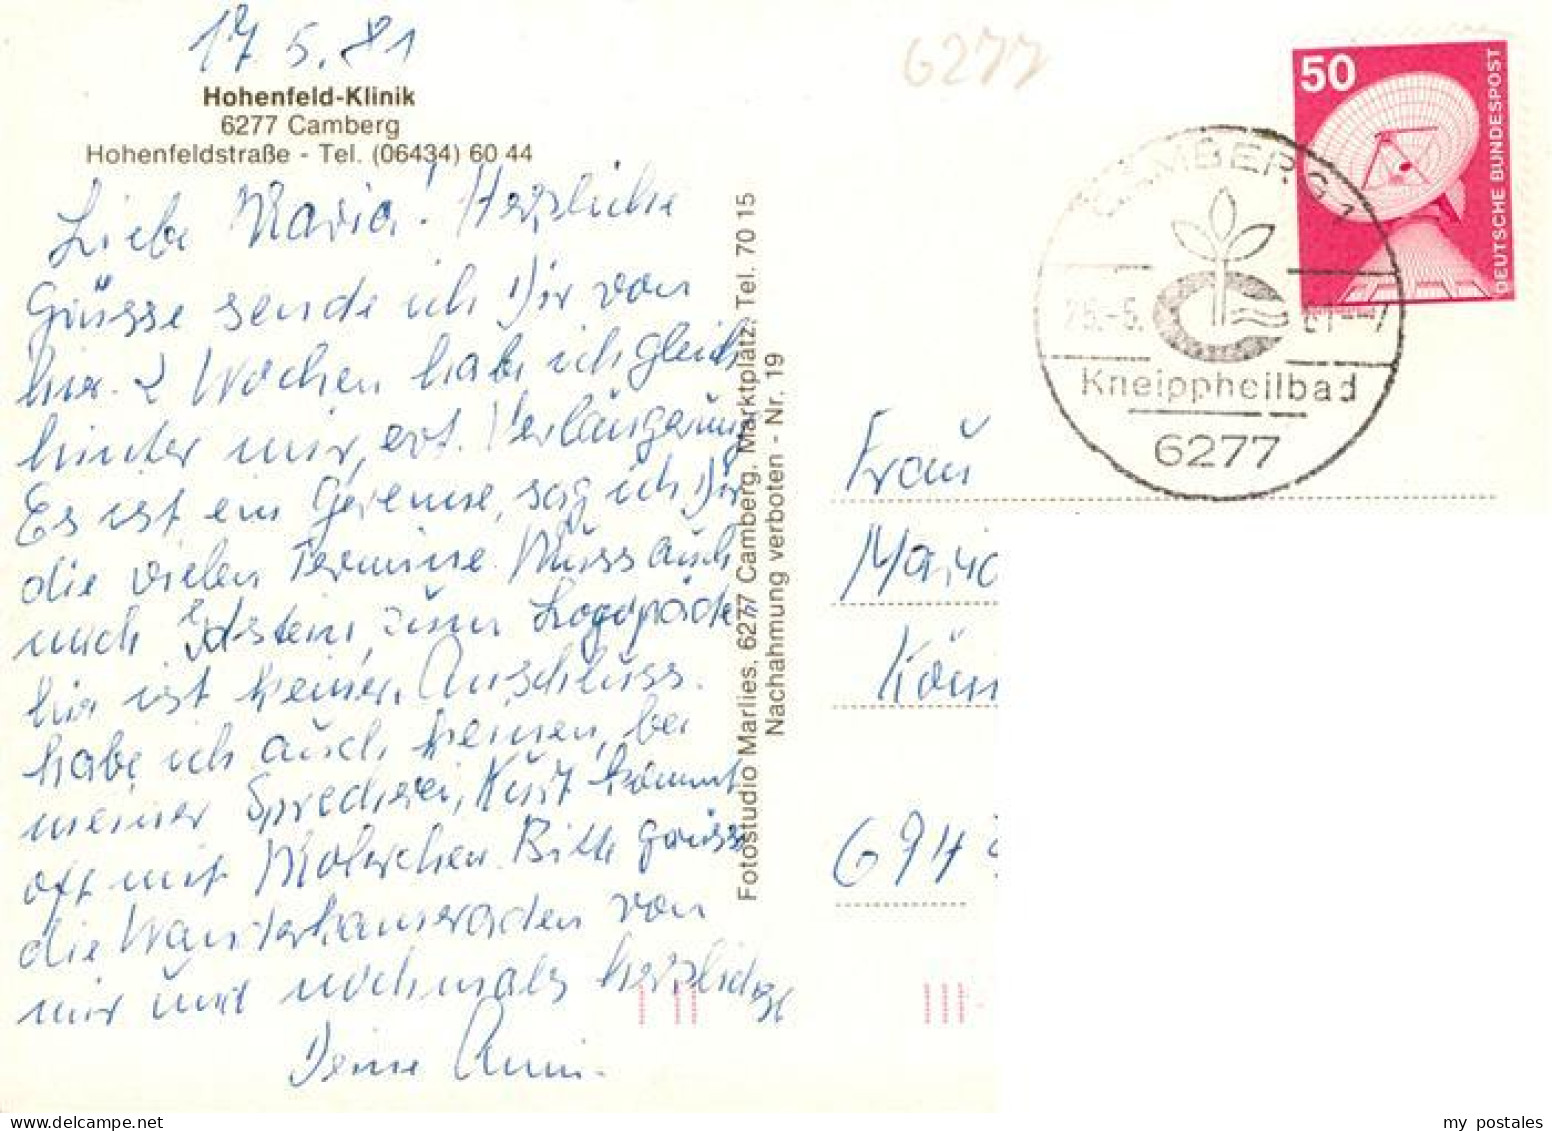 17.5.81
Hohenfeld-Klinik
6277 Camberg
Hohenfeldstraße - Tel. (06434) 60 44
Liebe Maria! Herzliche
Grüsse sende ich Dir von
hier. 2 Wochen habe ich gleich
hinter mir, evt. Verlängerung
Es ist ein Gerenne, sag ich Dir
die vielen Termine. Muss auch
nach Idstein, zum Logopäde
hier ist keiner, Anschluss
habe ich auch keinen, bei
meiner Sprecherei, Kurt kommt
oft mit Malwchen. Bitte grüss
die von
mir und nochmals herzlichst
Deine Anni.
Fotostudio Marlies, 6277 Camberg, Marktplatz, Tel. 70 15
Nachahmung verboten - Nr. 19
6277
50
DEUTSCHE BUNDESPOST
CAMBERG 1
25.-5.
Kneippheilbad
6277
Frau
Maria
Kön
694
my postales